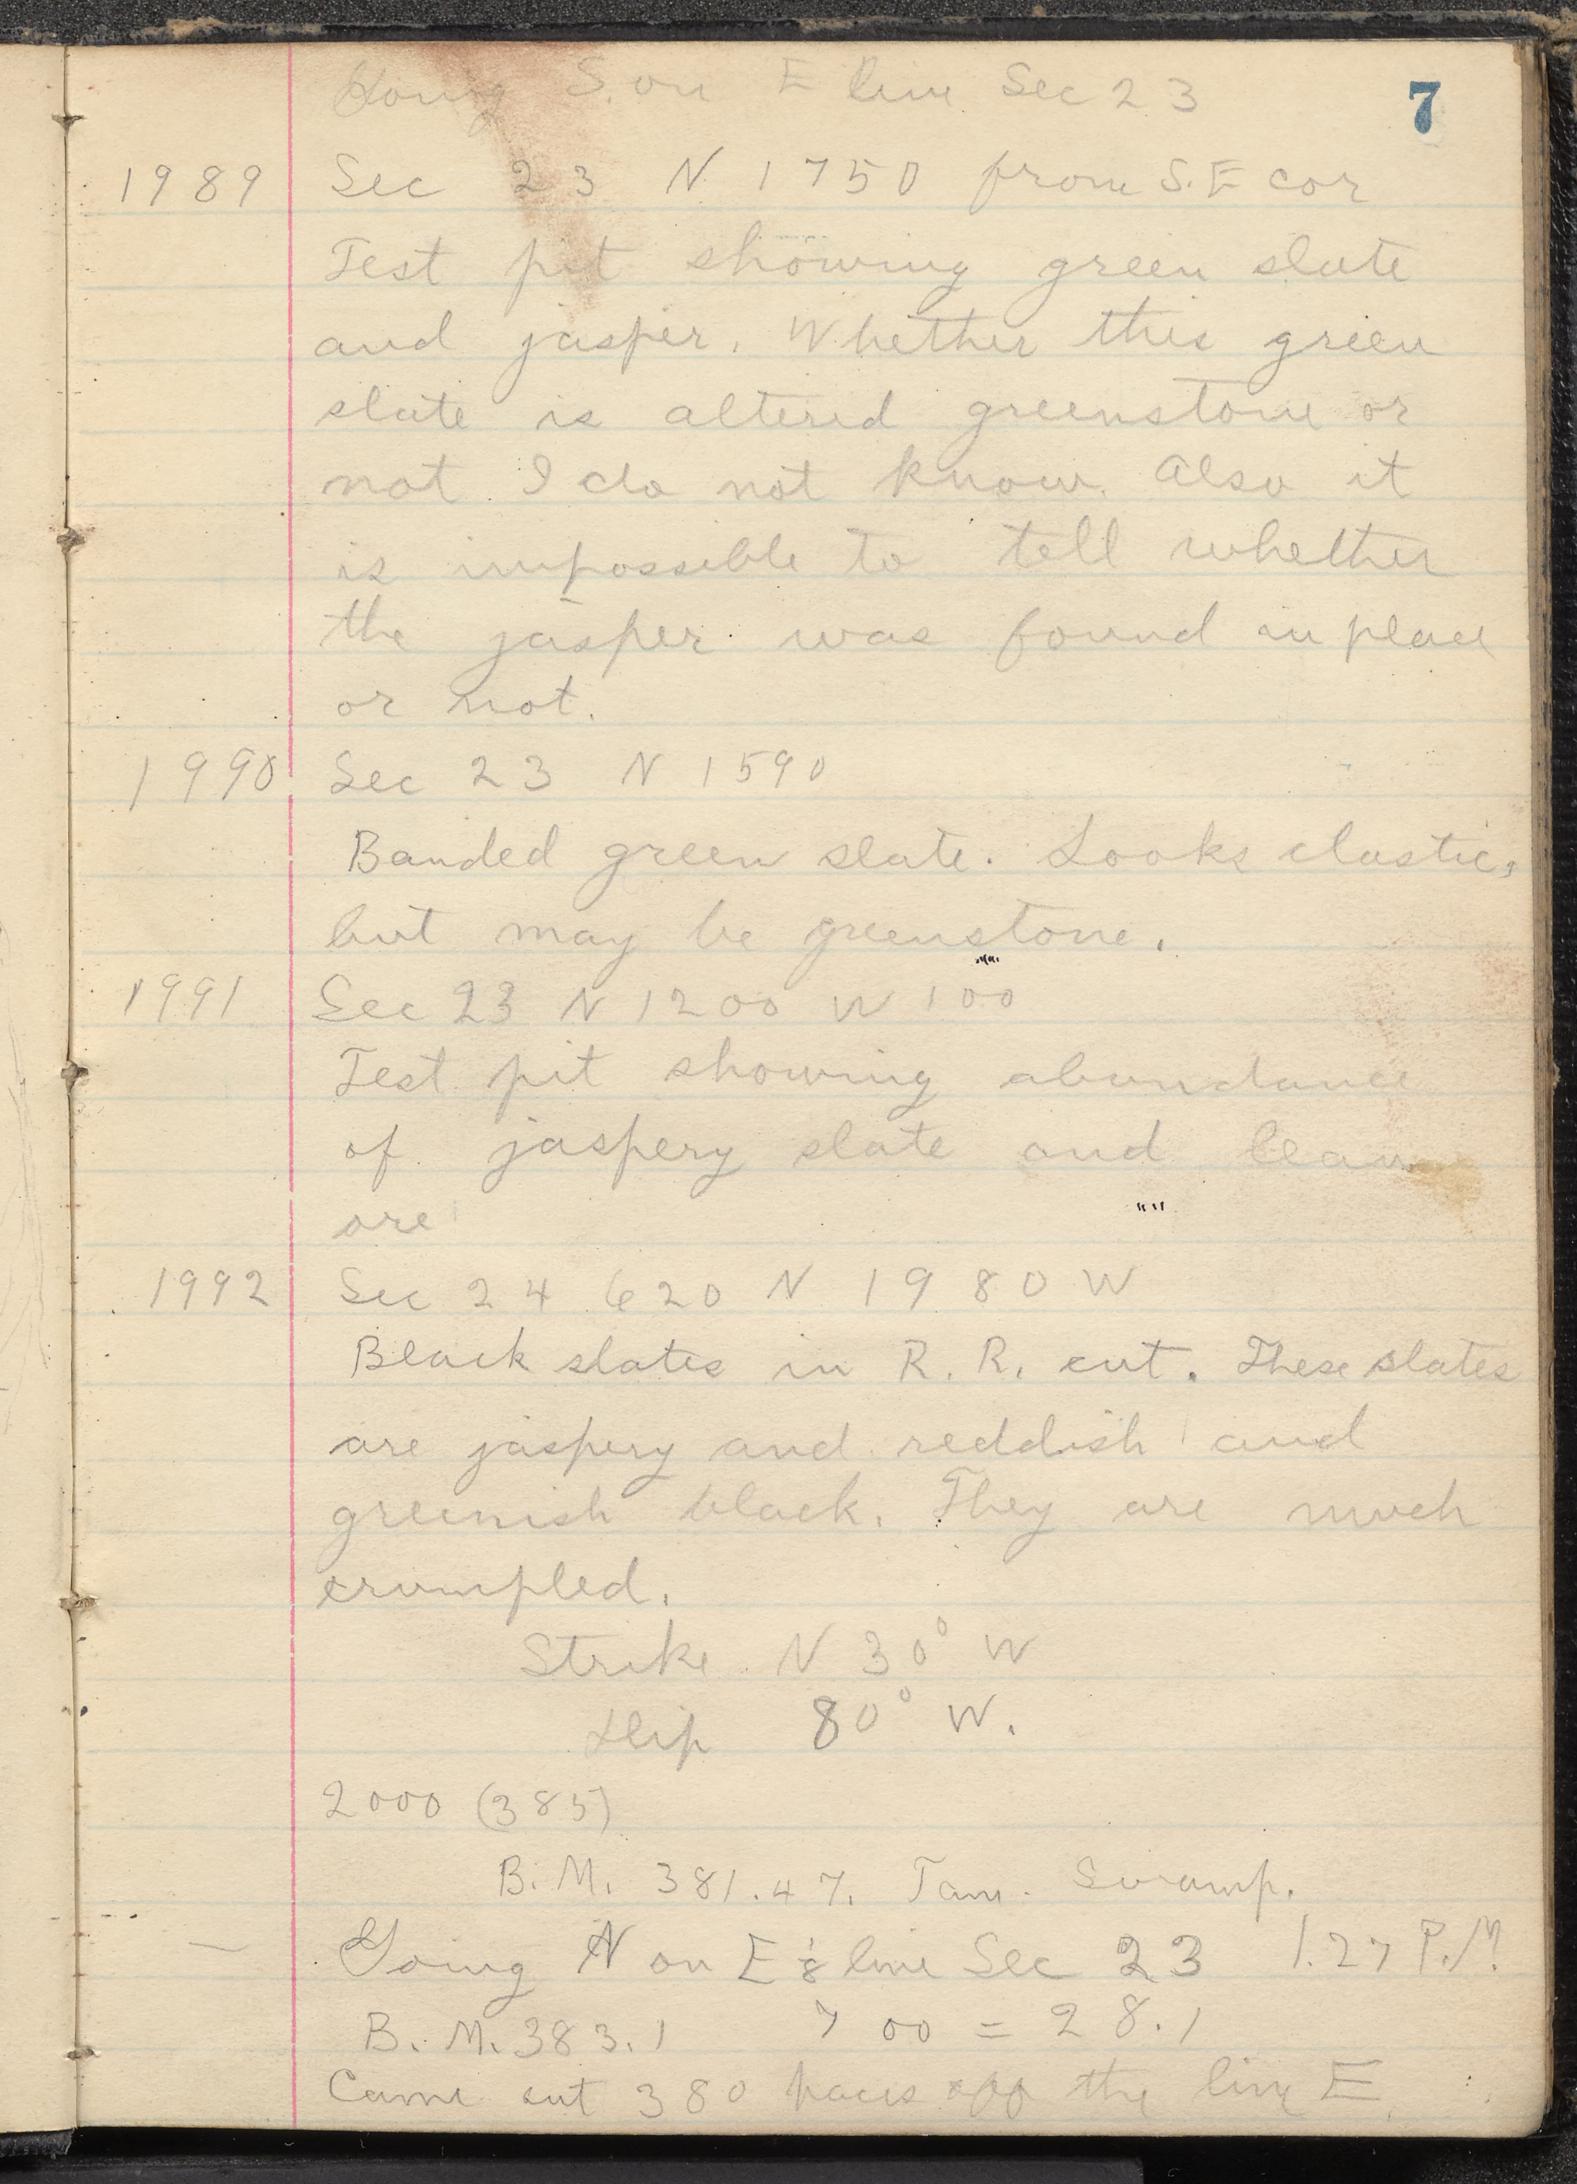 Going S. on E line Sec 23
7
1989 Sec 23 N 1750 from S.E cor
Test pit showing green slate
and jasper. Whether this green
slate is altered greenstone or
not I do not know. Also it
is impossible to tell whether
the jasper was found in place
or not.
1990 Sec 23 N 1590
Banded green slate. Looks clastic,
but may be greenstone.
1991 Sec 23 N 1200 W 100
Test pit showing abundance
of jaspery slate and lean
ore
1992 Sec 24 620 N 1980 W
Black slates in R.R. cut. These slates
are jaspery and reddish and
greenish black. They are much
crumpled.
Strike N 30° W
Dip 80° W.
2000 (385)
B.M. 381.47. Tam. Swamp.
— Going N on E 1/8 line Sec 23 1.27 P.M.
B.M. 383.1 700 = 28.1
Came out 380 paces off the line E.